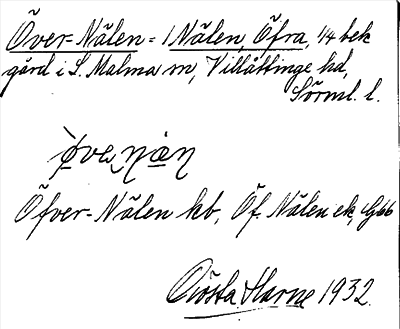 Över-Nälen = 1 Nälen, Öfra, 1/4 bek
gård i L. Malma sn, Villåttinge hd,
Sörml. l.
Öfver-Nälen kb, Öf. Nälen ek, Gbb
Gösta Harne 1932.